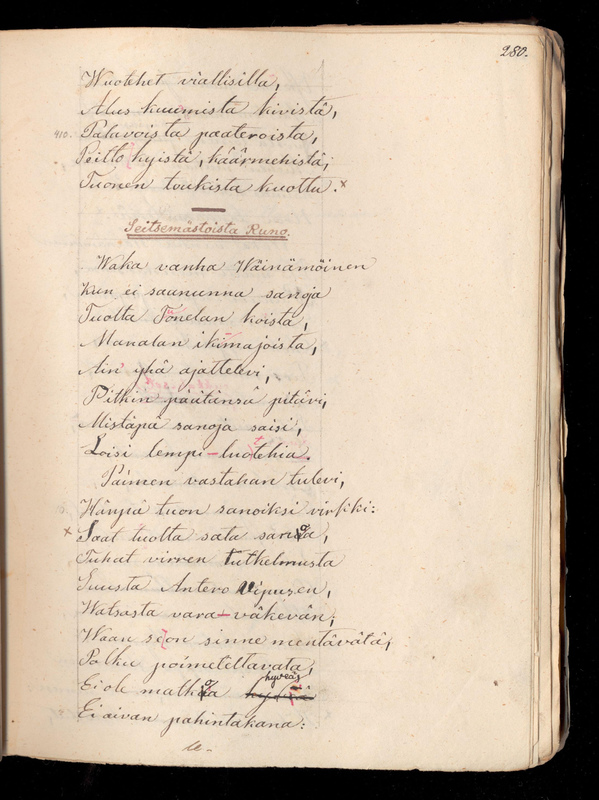 280.
Wuotehet viallisilla,
Alus kuumista kivistä,
410. Palavoista paateroista,
Peitto kyistä, käärmehistä,
Tuonen toukista kuottu. x
Seitsemästoista Runo.
Waka vanha Wäinämöinen
Kun ei saanunna sanoja
Tuolta Tuonelan koista,
Manalan ikimajoista,
Ain' yhä ajattelevi,
Pitkin päätänsä pitävi,
Mistäpä sanoja saisi,
Loisi lempi-luotehia.
Paimen vastahan tulevi,
Hänpä tuon sanoiksi virkki:
x Saat tuolta sata sanoa,
Tuhat virren tutkelmusta
Suusta Antero Vipuzen,
Watsasta vara-väkevän;
Waan se on sinne mentävätä,
Polku poimeteltavata,
hyveäs
Ei ole matkoa
Ei aivan pahintakana: